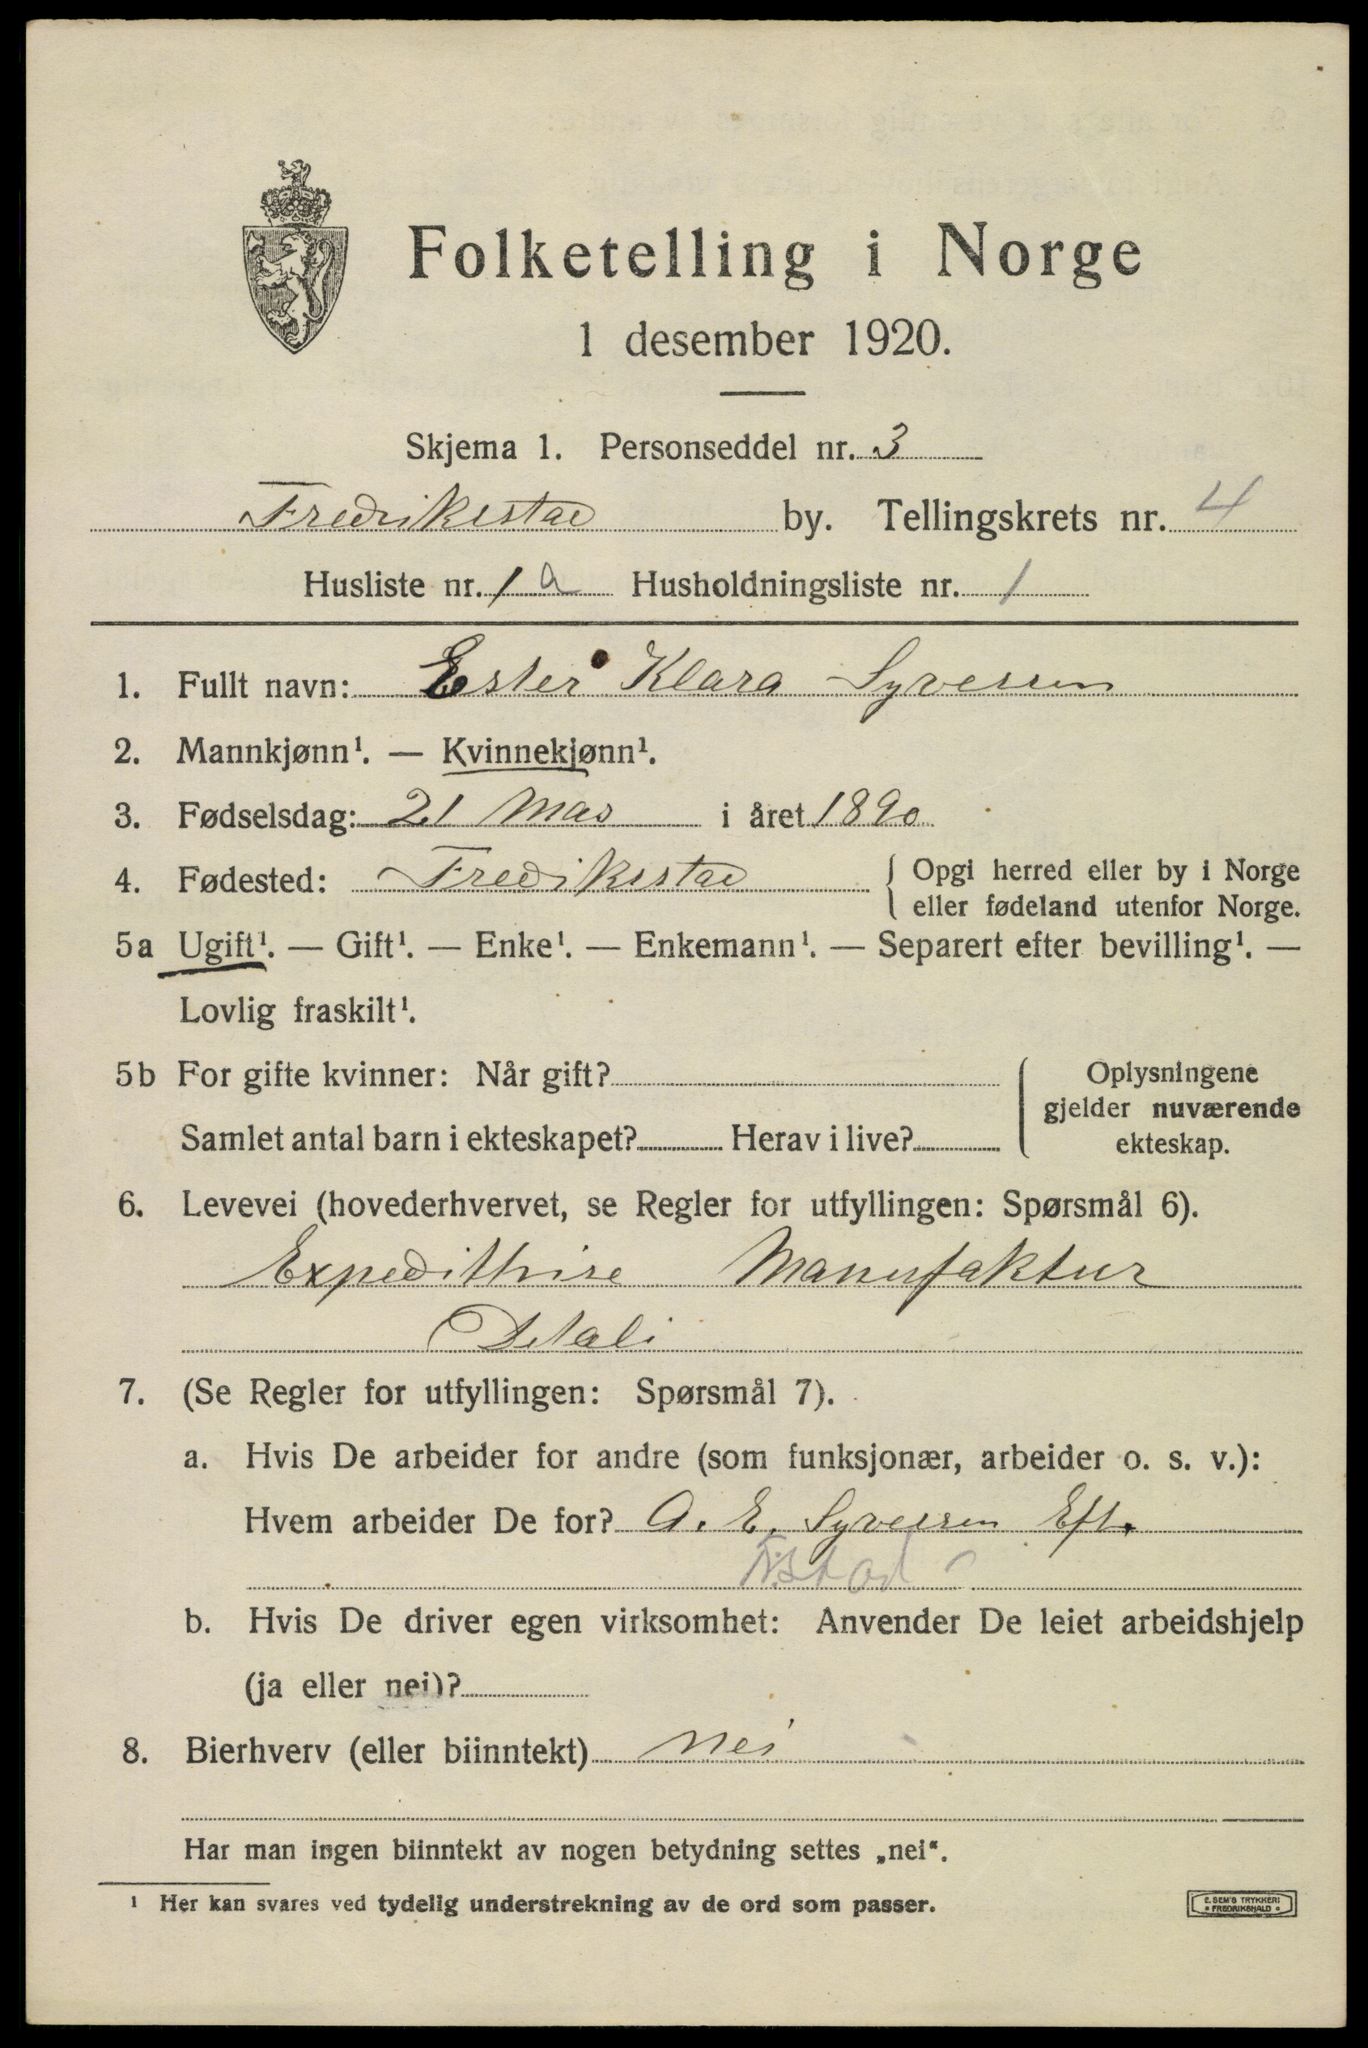 Folketelling i Norge
1 desember 1920.
Skjema 1. Personseddel nr. 3
Fredrikstad by. Tellingskrets nr. 4
Husliste nr. 1 a Husholdningsliste nr. 1
1. Fullt navn: Ester Klara Syversen
2. Mannkjønn¹. — Kvinnekjønn¹.
3. Fødselsdag: 21 Mars i året 1890
4. Fødested: Fredrikstad { Opgi herred eller by i Norge
eller fødeland utenfor Norge.
5a Ugift¹. — Gift¹. — Enke¹. — Enkemann¹. — Separert efter bevilling¹. —
Lovlig fraskilt¹.
5b For gifte kvinner: Når gift? { Oplysningene
gjelder nuværende
ekteskap.
Samlet antal barn i ekteskapet? Herav i live?
6. Levevei (hovederhvervet, se Regler for utfyllingen: Spørsmål 6).
Expeditrise Manufaktur
Detali
7. (Se Regler for utfyllingen: Spørsmål 7).
a. Hvis De arbeider for andre (som funksjonær, arbeider o. s. v.):
Hvem arbeider De for? A. E. Syversen Eft.
F.stad
b. Hvis De driver egen virksomhet: Anvender De leiet arbeidshjelp
(ja eller nei)?
8. Bierhverv (eller biinntekt) nei
Har man ingen biinntekt av nogen betydning settes „nei“.
¹ Her kan svares ved tydelig understrekning av de ord som passer.
E. SEM'S TRYKKERI
• FREDRIKSHALD •